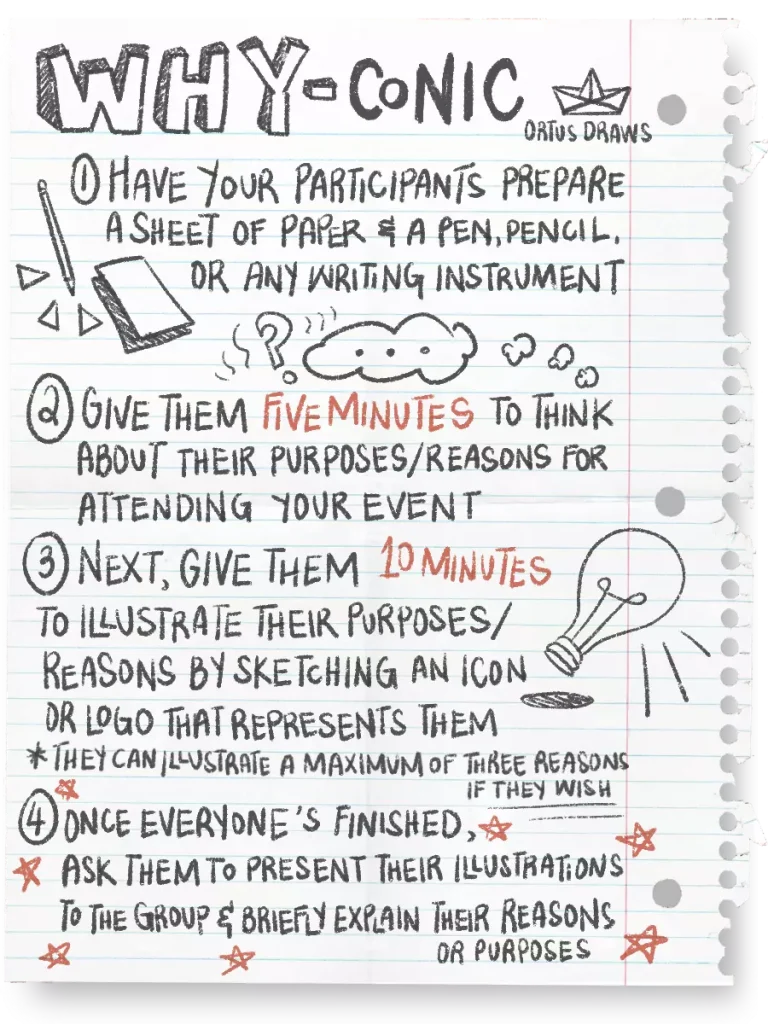 WHY-CONIC
ORTUS DRAWS
① HAVE YOUR PARTICIPANTS PREPARE
A SHEET OF PAPER & A PEN, PENCIL,
OR ANY WRITING INSTRUMENT
?
② GIVE THEM FIVE MINUTES TO THINK
ABOUT THEIR PURPOSES/REASONS FOR
ATTENDING YOUR EVENT
③ NEXT, GIVE THEM 10 MINUTES
TO ILLUSTRATE THEIR PURPOSES/
REASONS BY SKETCHING AN ICON
OR LOGO THAT REPRESENTS THEM
* THEY CAN ILLUSTRATE A MAXIMUM OF THREE REASONS
IF THEY WISH
④ ONCE EVERYONE'S FINISHED,
ASK THEM TO PRESENT THEIR ILLUSTRATIONS
TO THE GROUP & BRIEFLY EXPLAIN THEIR REASONS
OR PURPOSES